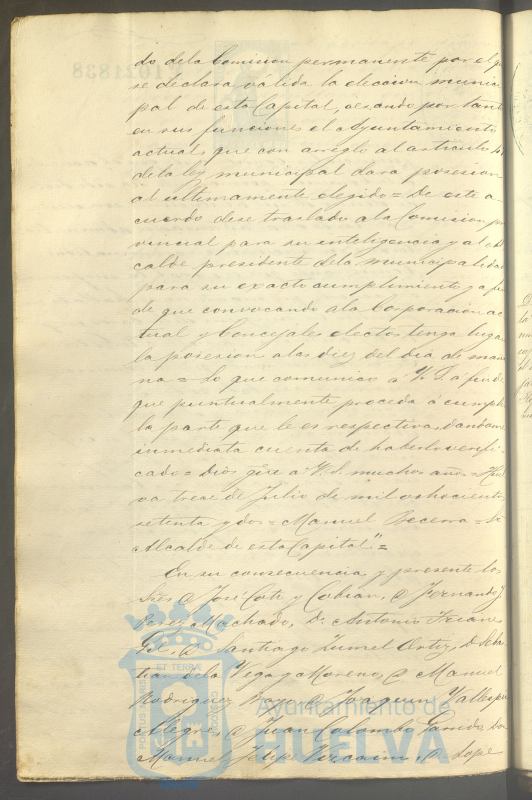 do de la Comision permanente por el q.
se declara válida la eleccion munici
pal de esta Capital, cesando por tanto
en sus funciones el Ayuntamiento
actual, que con arreglo al articulo
de la ley municipal dara posesion
al ultimamente elejido = De este a
cuerdo dese traslado a la Comision pro
vincial para su inteligencia y al al
calde presidente de la municipalidad
para su exacto cumplimiento y a fin
de que convocando a la Corporacion ac
tual y Concejales electos tenga lugar
la posesion a las diez del dia de maña
na = Lo que comunico á V. S. á fin de
que puntualmente proceda á cumplir
la parte que le es respectiva, dandome
inmediata cuenta de haberlo verifi
cado = Dios gue a V. S. muchos años = Huel
va trece de Julio de mil ochocientos
setenta y dos = Manuel Becerra = Sr
Alcalde de esta Capital" =
En su consecuencia y presente los
Sres D José Coto y Cobian, D Fernando
Perez Machado, D. Antonio
Gil, D Santiago Ortiz, D Sebas
tian de la Vega y Moreno, D Manuel
Rodriguez, D Joaquin
D Juan Colombo Garrido, Don
Manuel Felipe, D Lope
Ayuntamiento de
HUELVA